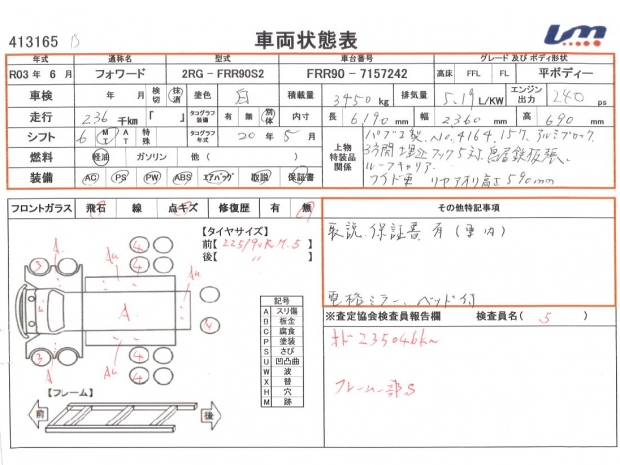 413165 B
車両状態表
年式 通称名 型式 車台番号 グレード 及び ボディ形状
R03 年 6 月 フォワード 2RG - FRR90S2 FRR90 - 7157242 高床 FFL FL 平ボディー
車検 年 月 検切 抹消 塗色 白 積載量 3450 kg 排気量 5.19 L/KW エンジン出力 240 ps
走行 236 千km 「 」 タコグラフ装備 有 無 別体 内寸 長 6190 mm 幅 2360 mm 高 690 mm
シフト 6 MT AT 特殊 タコグラフ年式 20 年 5 月 上物特装品関係 パブコ製、No.4164.157. アルミブロック.
燃料 軽油 ガソリン 他 ( ) 3方開 埋込フック5対. 鉄板張、
ルーフキャリア.
装備 AC PS PW ABS エアバッグ 取説 保証書 ワイド車 リヤアオリ高さ590mm
フロントガラス 飛石 線 点キズ 修復歴 有 無
その他特記事項
取説.保証書 有 (車内)
電格ミラー、ベッド付
【タイヤサイズ】
前【225/90R17.5】
後【 〃 】
A
4 4
3
A
Au
A
A
Au
3
4 4
記号
A スリ傷
B 板金
C 腐食
P 塗装
S さび
U 凹凸曲
W 波
X 替
H 穴
M 跡
【フレーム】
前
後
※査定協会検査員報告欄 検査員名 ( 5 )
オド235046km
フレーム一部S